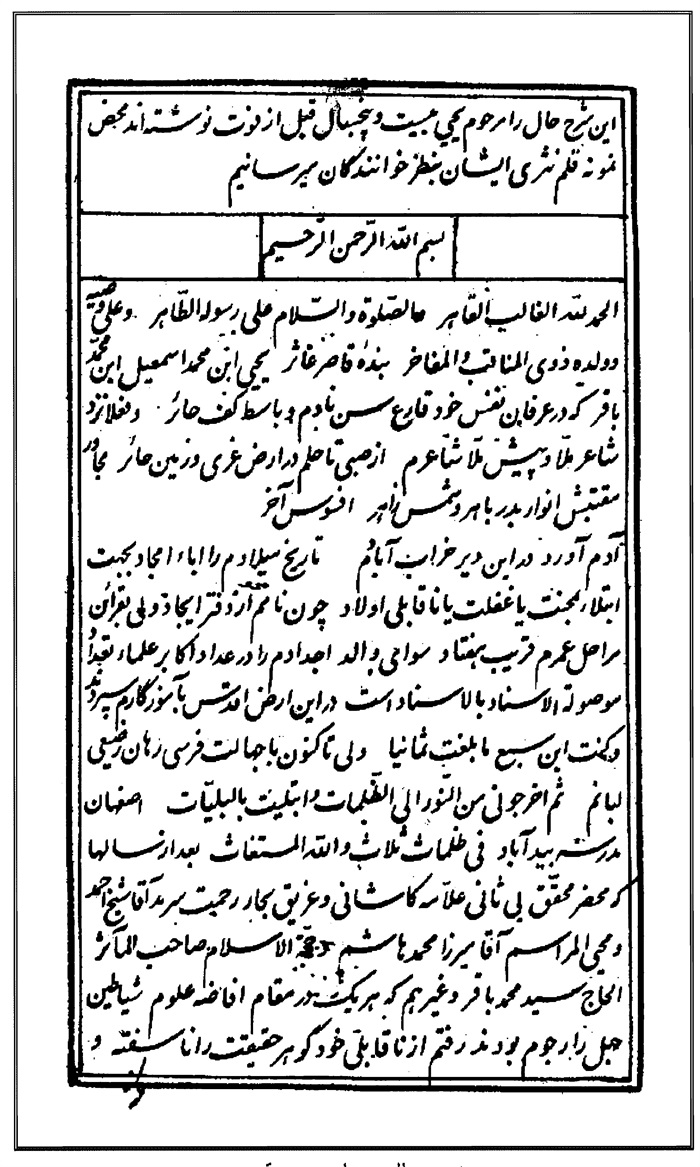 این شرح حال را مرحوم یحیی بیست و پنجسال قبل از فوت نوشته اند محض
نمونه قلم نثری ایشان بنظر خوانندگان میرسانیم
بسم الله الرحمن الرحیم
الحمد لله الغالب القاهر والصلوة والسلام علی رسوله الطاهر وعلی وصیه
وولده ذوی المناقب والمفاخر بنده قاصر عاثر یحیی ابن محمد اسمعیل ابن محمد
باقر که در عرفان نفس خود قارع سن نادم و باسط کف حائر و فعلا نزد
شاعر ملا و پیش ملا شاعرم از صبی تا حلم در ارض غری و زمین حائر مجاور
مقتبس انوار بدر باهر و شمس زاهر افسوس آخر
آدم آورد در این دیر خراب آبادم تاریخ میلادم را اباء امجاد بجهت
ابتلاء بمحنت یا غفلت یا ناقابلی اولاد چون نامم از دفتر ایجاد ولی بقرائن
مراحل عمرم قریب بهفتاد سوای والد اجدادم را در عداد اکابر علماء تعداد
موصولة الاسناد بالاسناد است در این ارض اقدس بآموزگارم سپردند
وکنت ابن سبع ما بلغت ثمانیا ولی تاکنون با جهالت فرسی رهان رضیعی
لبانم ثم اخرجونی من النور الی الظلمات وابتلیت بالبلیات اصفهان
مدرسه بیدآباد فی ظلمات ثلاث والله المستغاث بعد از سالها
که محضر محقق بی ثانی علامه کاشانی و غریق بحار رحمت سرمد آقا شیخ احمد
و محیی المراسم آقا میرزا محمد هاشم و حجة الاسلام صاحب المآثر
الحاج سید محمد باقر و غیرهم که هر یک در مقام افاضه علوم شیاطین
جهل را رجوم بودند رفتم از ناقابلی خود گوهر حقیقت را ناسفته و